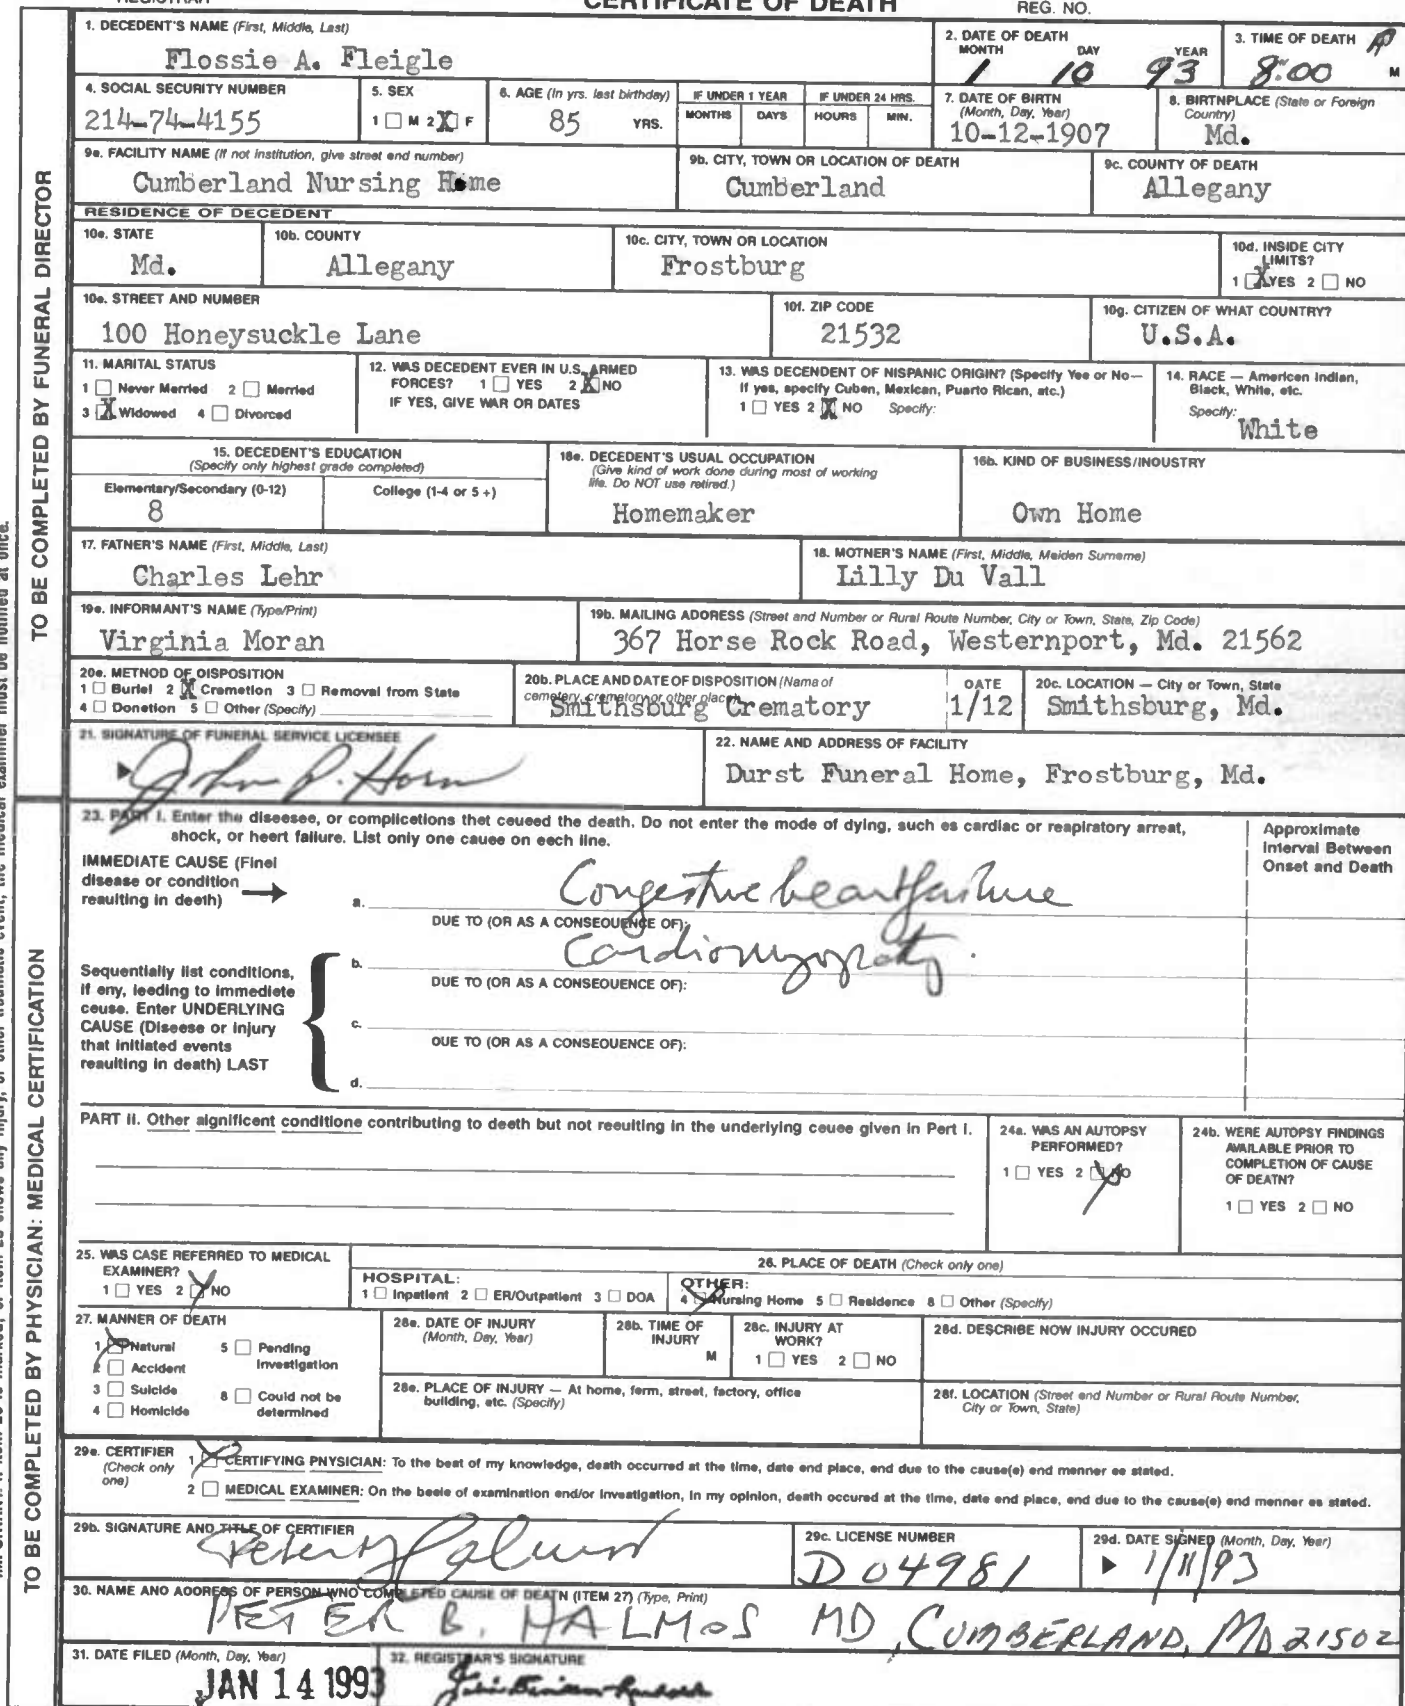 CERTIFICATE OF DEATH
REG. NO.
1. DECEDENT'S NAME (First, Middle, Last)
Flossie A. Fleigle
2. DATE OF DEATH
MONTH DAY YEAR
1 10 93
3. TIME OF DEATH
8:00 P M
4. SOCIAL SECURITY NUMBER
214-74-4155
5. SEX
1 M 2 X F
6. AGE (In yrs. last birthday)
85 YRS.
IF UNDER 1 YEAR
MONTHS DAYS
IF UNDER 24 HRS.
HOURS MIN.
7. DATE OF BIRTH
(Month, Day, Year)
10-12-1907
8. BIRTHPLACE (State or Foreign
Country)
Md.
9a. FACILITY NAME (If not institution, give street and number)
Cumberland Nursing Home
9b. CITY, TOWN OR LOCATION OF DEATH
Cumberland
9c. COUNTY OF DEATH
Allegany
RESIDENCE OF DECEDENT
10a. STATE
Md.
10b. COUNTY
Allegany
10c. CITY, TOWN OR LOCATION
Frostburg
10d. INSIDE CITY
LIMITS?
1 X YES 2 NO
10e. STREET AND NUMBER
100 Honeysuckle Lane
10f. ZIP CODE
21532
10g. CITIZEN OF WHAT COUNTRY?
U.S.A.
11. MARITAL STATUS
1 Never Married 2 Married
3 X Widowed 4 Divorced
12. WAS DECEDENT EVER IN U.S. ARMED
FORCES? 1 YES 2 X NO
IF YES, GIVE WAR OR DATES
13. WAS DECENDENT OF HISPANIC ORIGIN? (Specify Yes or No—
If yes, specify Cuban, Mexican, Puerto Rican, etc.)
1 YES 2 X NO Specify:
14. RACE — American Indian,
Black, White, etc.
Specify:
White
15. DECEDENT'S EDUCATION
(Specify only highest grade completed)
Elementary/Secondary (0-12)
8
College (1-4 or 5 +)
16a. DECEDENT'S USUAL OCCUPATION
(Give kind of work done during most of working
life. Do NOT use retired.)
Homemaker
16b. KIND OF BUSINESS/INDUSTRY
Own Home
17. FATHER'S NAME (First, Middle, Last)
Charles Lehr
18. MOTHER'S NAME (First, Middle, Maiden Surname)
Lilly Du Vall
19a. INFORMANT'S NAME (Type/Print)
Virginia Moran
19b. MAILING ADDRESS (Street and Number or Rural Route Number, City or Town, State, Zip Code)
367 Horse Rock Road, Westernport, Md. 21562
20a. METHOD OF DISPOSITION
1 Burial 2 X Cremation 3 Removal from State
4 Donation 5 Other (Specify)
20b. PLACE AND DATE OF DISPOSITION (Name of
cemetery, crematory or other place)
Smithsburg Crematory
DATE
1/12
20c. LOCATION — City or Town, State
Smithsburg, Md.
21. SIGNATURE OF FUNERAL SERVICE LICENSEE
John P. Horn
22. NAME AND ADDRESS OF FACILITY
Durst Funeral Home, Frostburg, Md.
TO BE COMPLETED BY FUNERAL DIRECTOR
23. PART I. Enter the diseases, or complications that caused the death. Do not enter the mode of dying, such as cardiac or respiratory arrest,
shock, or heart failure. List only one cause on each line.
Approximate
Interval Between
Onset and Death
IMMEDIATE CAUSE (Final
disease or condition
resulting in death)
a. Congestive heart failure
DUE TO (OR AS A CONSEQUENCE OF):
b. Cardiomyopathy.
DUE TO (OR AS A CONSEQUENCE OF):
Sequentially list conditions,
if any, leading to immediate
cause. Enter UNDERLYING
CAUSE (Disease or injury
that initiated events
resulting in death) LAST
c.
DUE TO (OR AS A CONSEQUENCE OF):
d.
PART II. Other significant conditions contributing to death but not resulting in the underlying cause given in Part I.
24a. WAS AN AUTOPSY
PERFORMED?
1 YES 2 X NO
24b. WERE AUTOPSY FINDINGS
AVAILABLE PRIOR TO
COMPLETION OF CAUSE
OF DEATH?
1 YES 2 NO
25. WAS CASE REFERRED TO MEDICAL
EXAMINER?
1 YES 2 X NO
26. PLACE OF DEATH (Check only one)
HOSPITAL:
1 Inpatient 2 ER/Outpatient 3 DOA
OTHER:
4 X Nursing Home 5 Residence 6 Other (Specify)
27. MANNER OF DEATH
1 X Natural 5 Pending
Investigation
2 Accident
3 Suicide 6 Could not be
determined
4 Homicide
28a. DATE OF INJURY
(Month, Day, Year)
28b. TIME OF
INJURY
M
28c. INJURY AT
WORK?
1 YES 2 NO
28d. DESCRIBE HOW INJURY OCCURED
28e. PLACE OF INJURY — At home, farm, street, factory, office
building, etc. (Specify)
28f. LOCATION (Street and Number or Rural Route Number,
City or Town, State)
29a. CERTIFIER
(Check only
one)
1 X CERTIFYING PHYSICIAN: To the best of my knowledge, death occurred at the time, date and place, and due to the cause(s) and manner as stated.
2 MEDICAL EXAMINER: On the basis of examination and/or investigation, in my opinion, death occured at the time, date and place, and due to the cause(s) and manner as stated.
29b. SIGNATURE AND TITLE OF CERTIFIER
29c. LICENSE NUMBER
D 04981
29d. DATE SIGNED (Month, Day, Year)
1/11/93
30. NAME AND ADDRESS OF PERSON WHO COMPLETED CAUSE OF DEATH (ITEM 27) (Type, Print)
PETER B. HALMOS MD, CUMBERLAND, MD 21502
31. DATE FILED (Month, Day, Year)
JAN 14 1993
32. REGISTRAR'S SIGNATURE
TO BE COMPLETED BY PHYSICIAN: MEDICAL CERTIFICATION